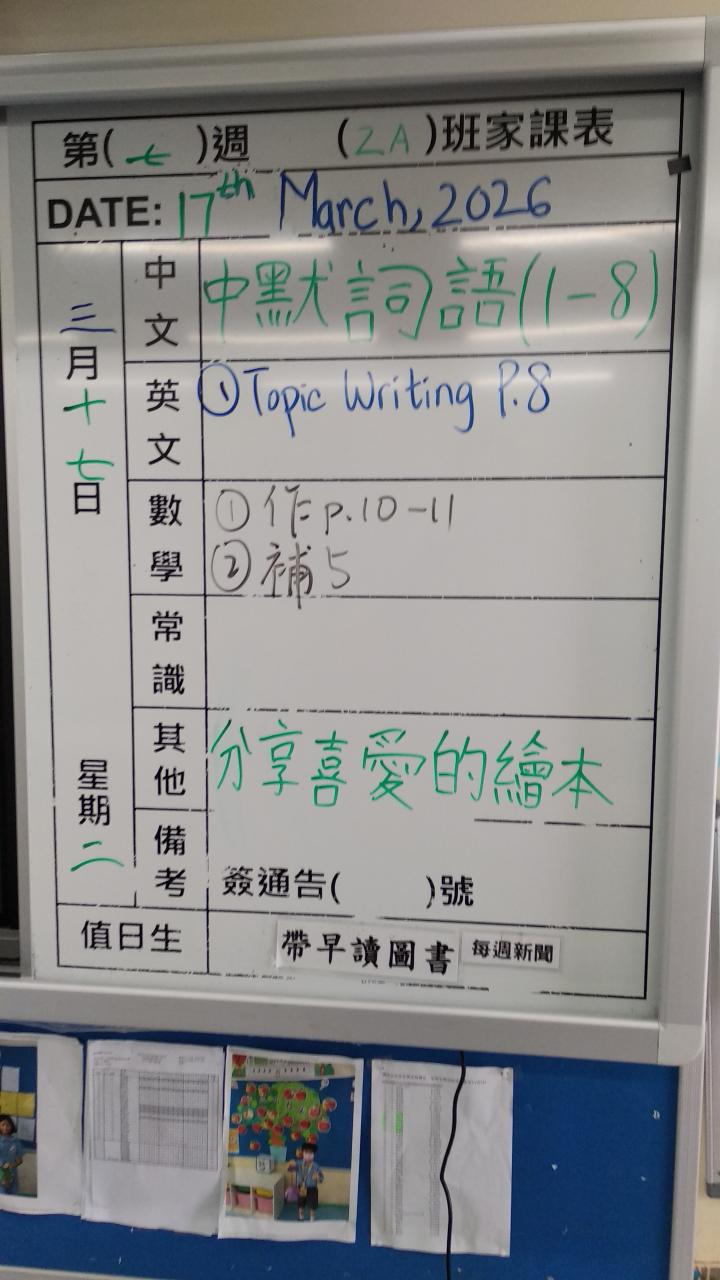 第(七)週 (2A)班家課表
DATE: 17th March, 2026
三月十七日 星期二
中文 中默詞語(1-8)
英文 ①Topic Writing P.8
數學 ①作p.10-11
②補5
常識
其他 分享喜愛的繪本
備考 簽通告( )號
值日生 帶早讀圖書 每週新聞